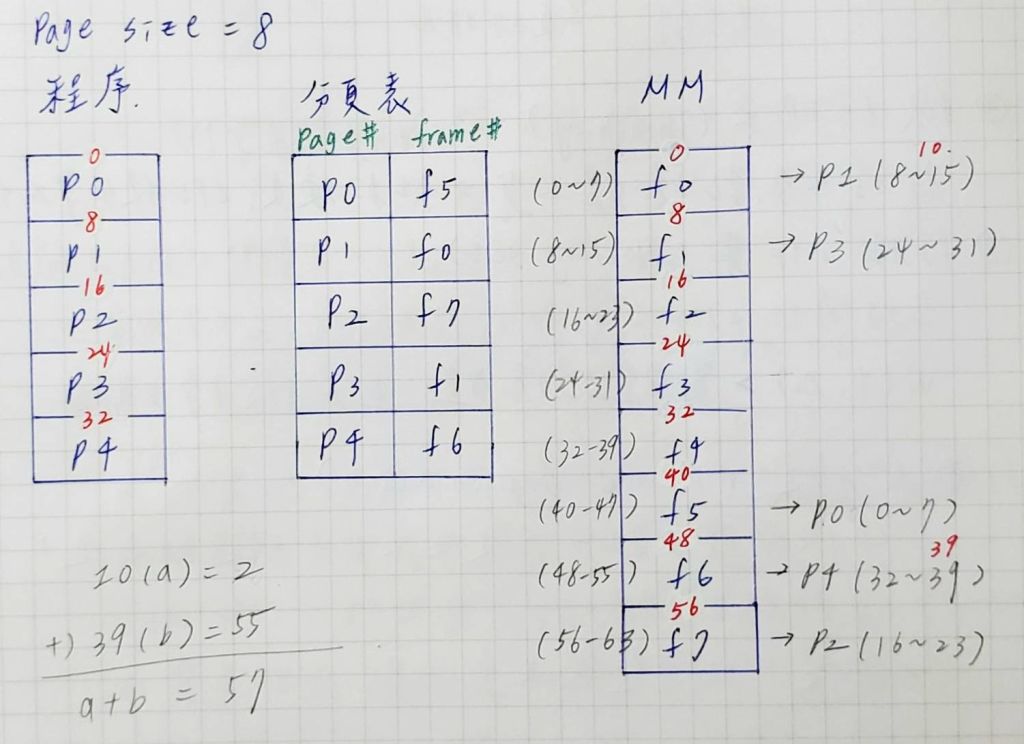 Page size = 8
程序.
分頁表
MM
Page# frame#
0
P0
8
P1
16
P2
24
P3
32
P4
P0 f5
P1 f0
P2 f7
P3 f1
P4 f6
0
(0~7) f0 → P1 (8~15) 10.
8
(8~15) f1 → P3 (24~31)
16
(16~23) f2
24
(24-31) f3
32
(32-39) f4
40
(40-47) f5 → P0 (0~7)
48
(48-55) f6 → P4 (32~39) 39
56
(56-63) f7 → P2 (16~23)
10(a) = 2
+) 39(b) = 55
a+b = 57